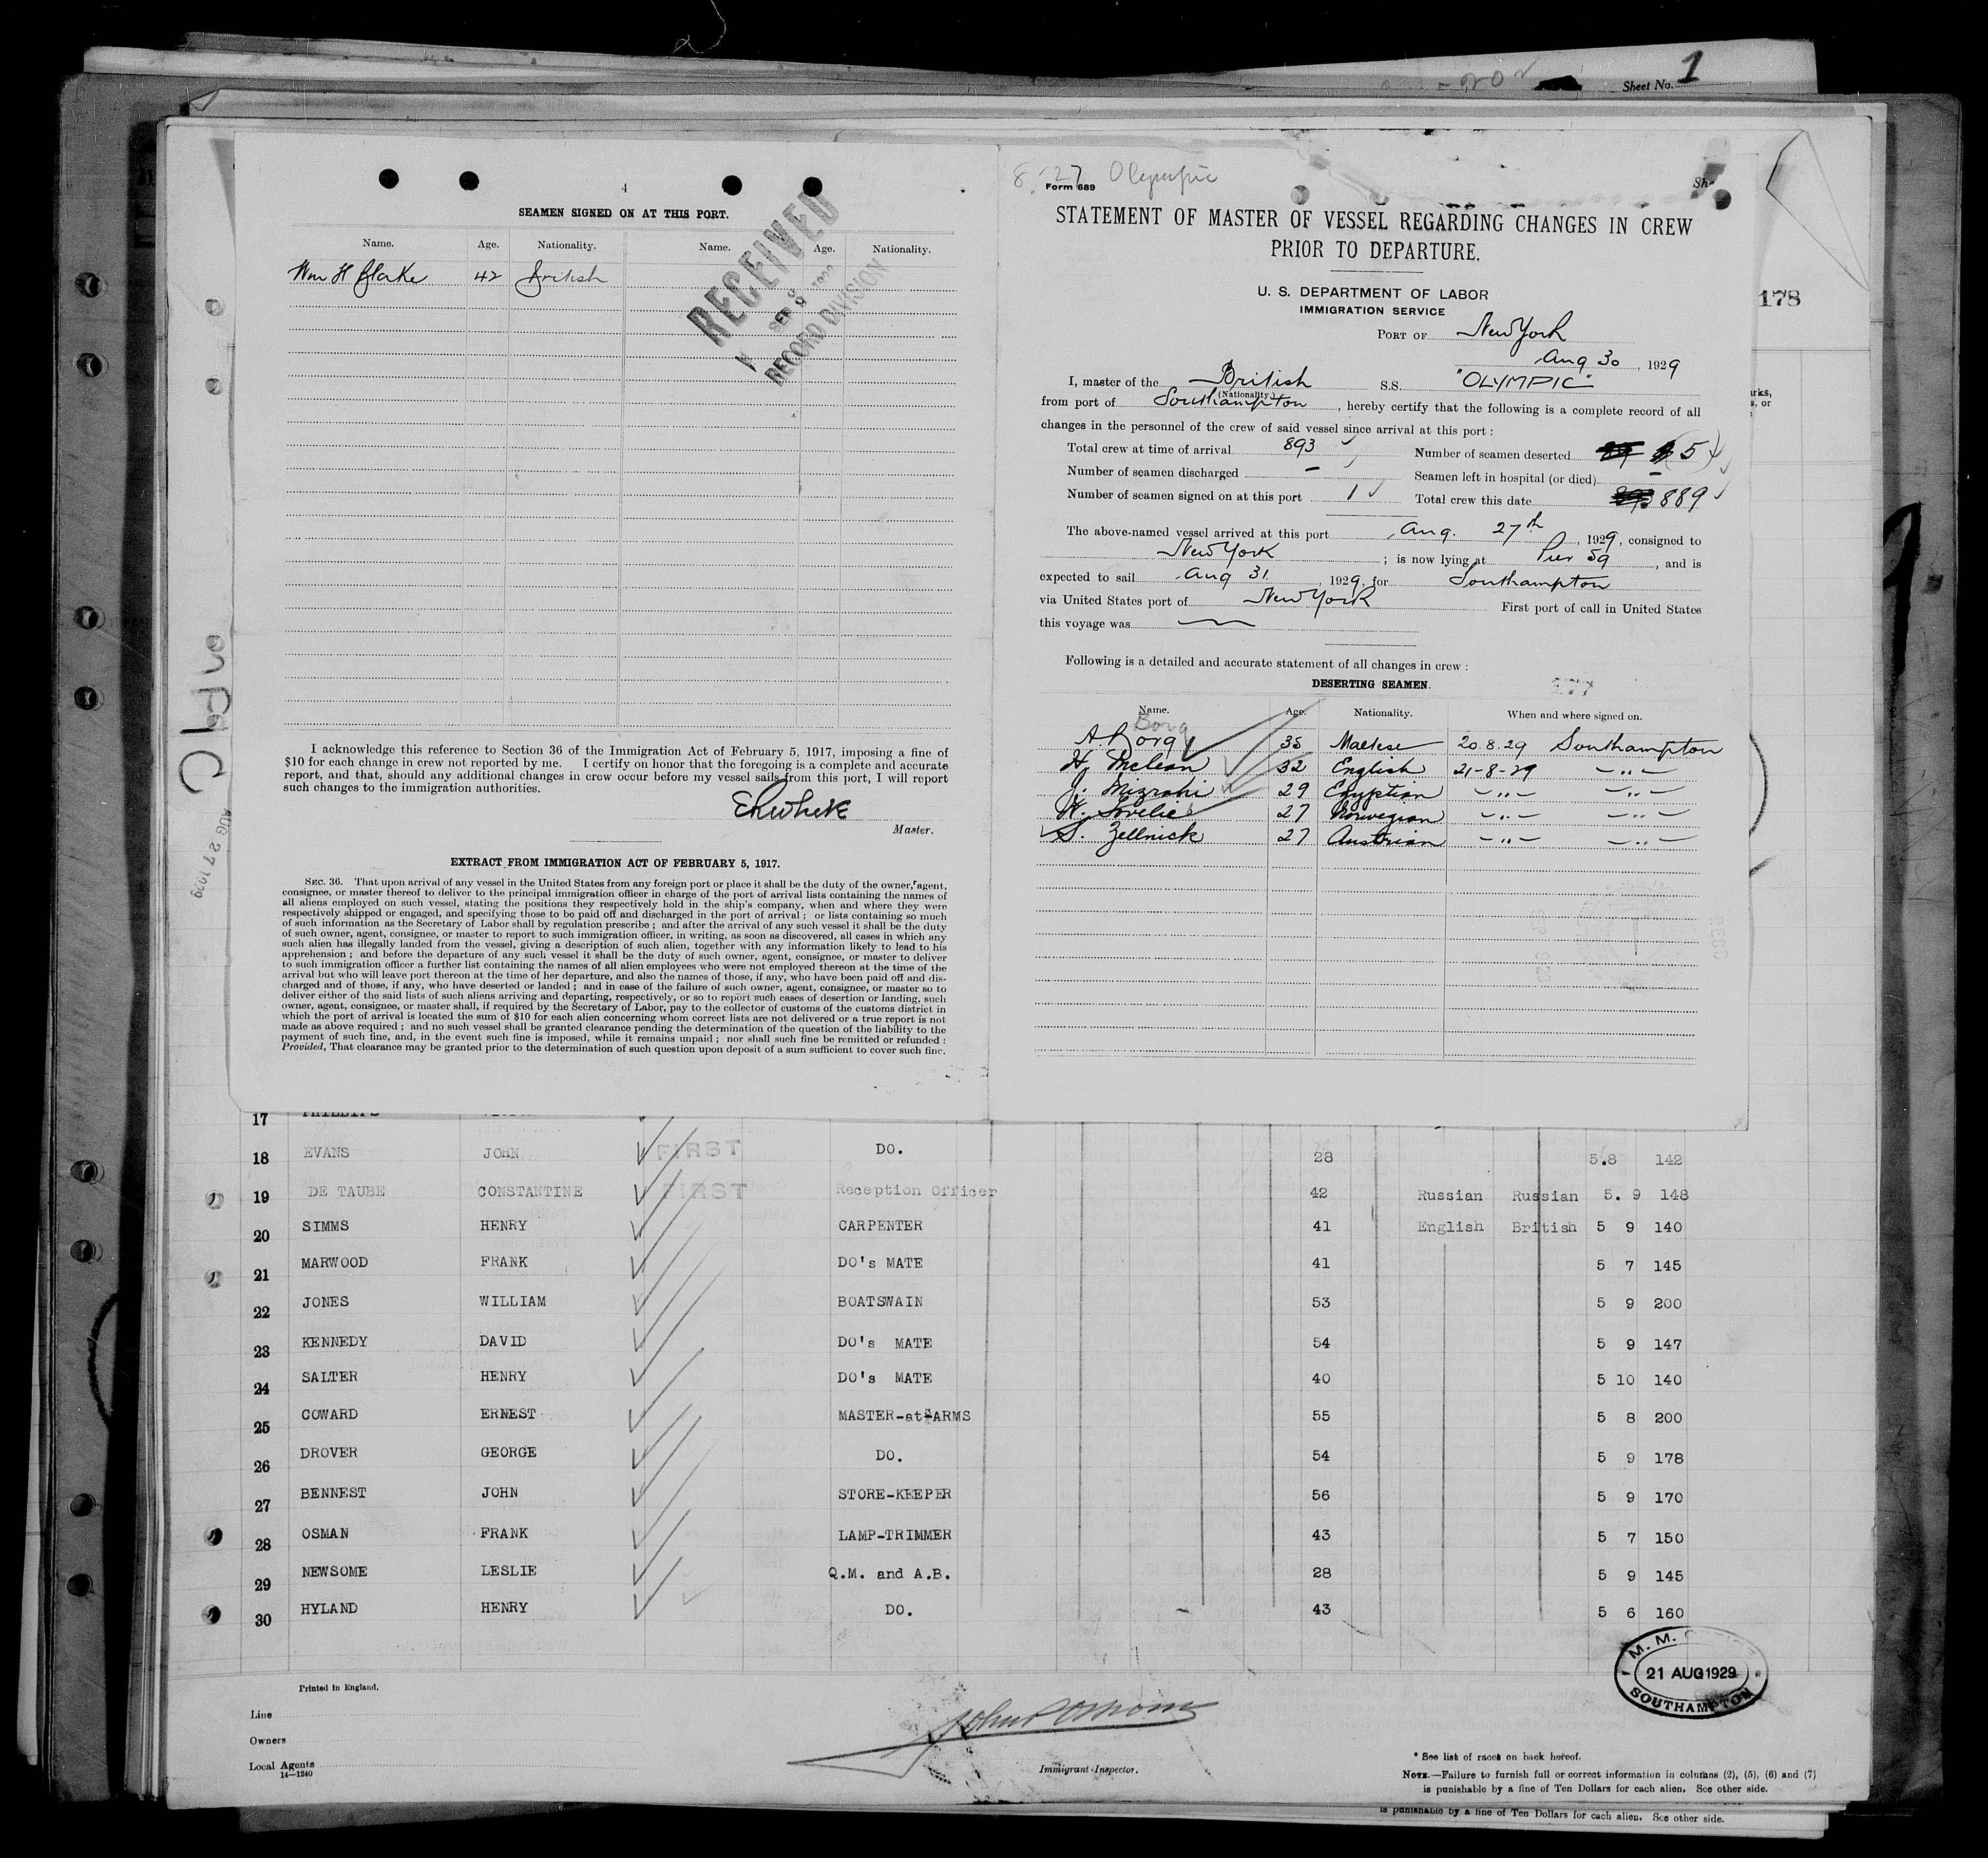 Sheet No. 1
4
SEAMEN SIGNED ON AT THIS PORT.
Name. Age. Nationality. Name. Age. Nationality.
Wm H Blake 42 British
RECEIVED
SEP 9
RECORD DIVISION
I acknowledge this reference to Section 36 of the Immigration Act of February 5, 1917, imposing a fine of
$10 for each change in crew not reported by me. I certify on honor that the foregoing is a complete and accurate
report, and that, should any additional changes in crew occur before my vessel sails from this port, I will report
such changes to the immigration authorities.
Master.
EXTRACT FROM IMMIGRATION ACT OF FEBRUARY 5, 1917.
SEC. 36. That upon arrival of any vessel in the United States from any foreign port or place it shall be the duty of the owner, agent,
consignee, or master thereof to deliver to the principal immigration officer in charge of the port of arrival lists containing the names of
all aliens employed on such vessel, stating the positions they respectively hold in the ship's company, when and where they were
respectively shipped or engaged, and specifying those to be paid off and discharged in the port of arrival ; or lists containing so much
of such information as the Secretary of Labor shall by regulation prescribe ; and after the arrival of any such vessel it shall be the duty
of such owner, agent, consignee, or master to report to such immigration officer, in writing, as soon as discovered, all cases in which any
such alien has illegally landed from the vessel, giving a description of such alien, together with any information likely to lead to his
apprehension ; and before the departure of any such vessel it shall be the duty of such owner, agent, consignee, or master to deliver
to such immigration officer a further list containing the names of all alien employees who were not employed thereon at the time of the
arrival but who will leave port thereon at the time of her departure, and also the names of those, if any, who have been paid off and dis-
charged and of those, if any, who have deserted or landed ; and in case of the failure of such owner, agent, consignee, or master so to
deliver either of the said lists of such aliens arriving and departing, respectively, or so to report such cases of desertion or landing, such
owner, agent, consignee, or master shall, if required by the Secretary of Labor, pay to the collector of customs of the customs district in
which the port of arrival is located the sum of $10 for each alien concerning whom correct lists are not delivered or a true report is not
made as above required ; and no such vessel shall be granted clearance pending the determination of the question of the liability to the
payment of such fine, and, in the event such fine is imposed, while it remains unpaid ; nor shall such fine be remitted or refunded :
Provided, That clearance may be granted prior to the determination of such question upon deposit of a sum sufficient to cover such fine.
AUG 27 1929
8-27 Olympic
Form 689
STATEMENT OF MASTER OF VESSEL REGARDING CHANGES IN CREW
PRIOR TO DEPARTURE.
U. S. DEPARTMENT OF LABOR
IMMIGRATION SERVICE
PORT OF New York
Aug 30, 1929
I, master of the British S.S. "OLYMPIC"
(Nationality.)
from port of Southampton, hereby certify that the following is a complete record of all
changes in the personnel of the crew of said vessel since arrival at this port :
Total crew at time of arrival 893 Number of seamen deserted 5
Number of seamen discharged - Seamen left in hospital (or died) -
Number of seamen signed on at this port 1 Total crew this date 889
The above-named vessel arrived at this port Aug. 27th, 1929, consigned to
New York ; is now lying at Pier 59, and is
expected to sail Aug 31, 1929, for Southampton
via United States port of New York First port of call in United States
this voyage was
Following is a detailed and accurate statement of all changes in crew :
DESERTING SEAMEN.
Name. Age. Nationality. When and where signed on.
Borg
A. Borg 35 Maltese 20.8.29 Southampton
H. Mclean 32 English 21-8-29 -"-
J. Mizrahi 29 Egyptian -"- -"-
27 Norwegian -"- -"-
S. Zellnick 27 Austrian -"- -"-
178
17
18 EVANS JOHN FIRST DO. 28 5.8 142
19 DE TAUBE CONSTANTINE FIRST Reception Officer 42 Russian Russian 5. 9 148
20 SIMMS HENRY CARPENTER 41 English British 5 9 140
21 MARWOOD FRANK DO's MATE 41 5 7 145
22 JONES WILLIAM BOATSWAIN 53 5 9 200
23 KENNEDY DAVID DO's MATE 54 5 9 147
24 SALTER HENRY DO's MATE 40 5 10 140
25 COWARD ERNEST MASTER-at-ARMS 55 5 8 200
26 DROVER GEORGE DO. 54 5 9 178
27 BENNEST JOHN STORE-KEEPER 56 5 9 170
28 OSMAN FRANK LAMP-TRIMMER 43 5 7 150
29 NEWSOME LESLIE Q.M. and A.B. 28 5 9 145
30 HYLAND HENRY DO. 43 5 6 160
M. M. OFFICE
21 AUG 1929
SOUTHAMPTON
Printed in England.
Line
Owners
Local Agents
14-1240
Immigrant Inspector.
* See list of races on back hereof.
NOTE.—Failure to furnish full or correct information in columns (2), (5), (6) and (7)
is punishable by a fine of Ten Dollars for each alien. See other side.
is punishable by a fine of Ten Dollars for each alien. See other side.